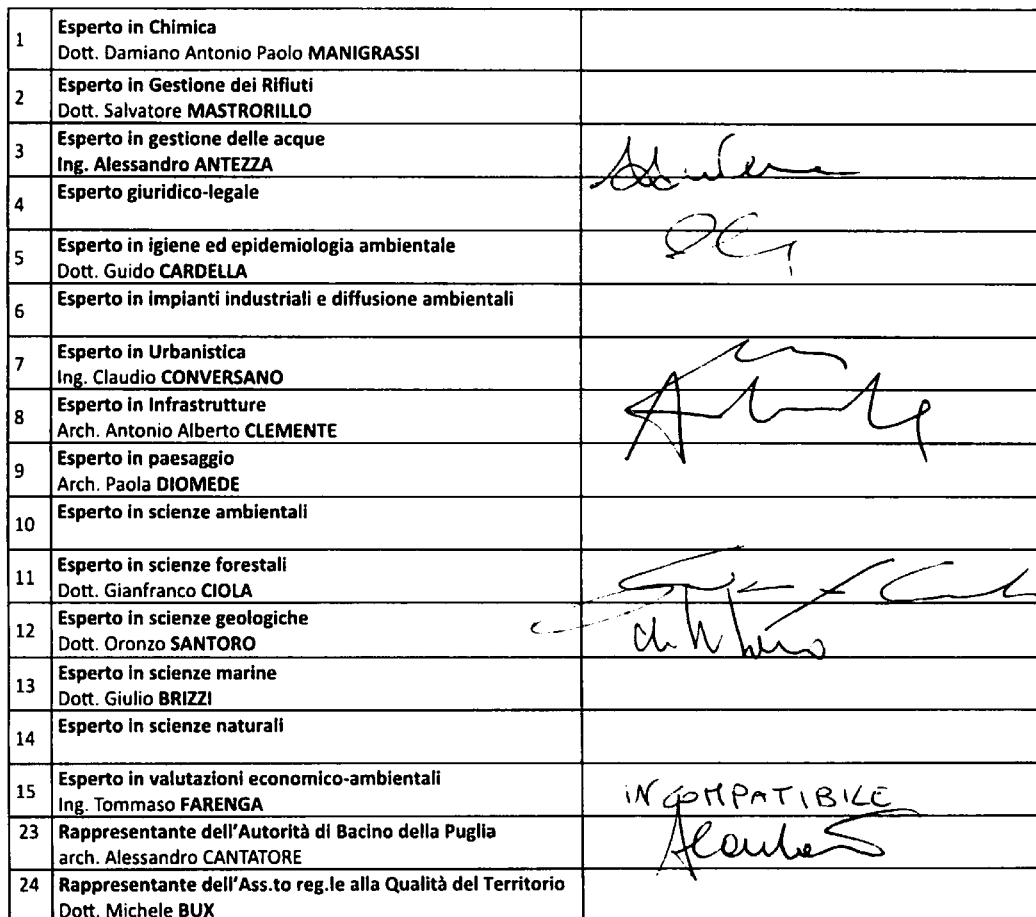 1 Esperto in Chimica
Dott. Damiano Antonio Paolo MANIGRASSI
2 Esperto in Gestione dei Rifiuti
Dott. Salvatore MASTRORILLO
3 Esperto in gestione delle acque
Ing. Alessandro ANTEZZA
4 Esperto giuridico-legale
5 Esperto in igiene ed epidemiologia ambientale
Dott. Guido CARDELLA
6 Esperto in impianti industriali e diffusione ambientali
7 Esperto in Urbanistica
Ing. Claudio CONVERSANO
8 Esperto in Infrastrutture
Arch. Antonio Alberto CLEMENTE
9 Esperto in paesaggio
Arch. Paola DIOMEDE
10 Esperto in scienze ambientali
11 Esperto in scienze forestali
Dott. Gianfranco CIOLA
12 Esperto in scienze geologiche
Dott. Oronzo SANTORO
13 Esperto in scienze marine
Dott. Giulio BRIZZI
14 Esperto in scienze naturali
15 Esperto in valutazioni economico-ambientali
Ing. Tommaso FARENGA
INCOMPATIBILE
23 Rappresentante dell'Autorità di Bacino della Puglia
arch. Alessandro CANTATORE
24 Rappresentante dell'Ass.to reg.le alla Qualità del Territorio
Dott. Michele BUX